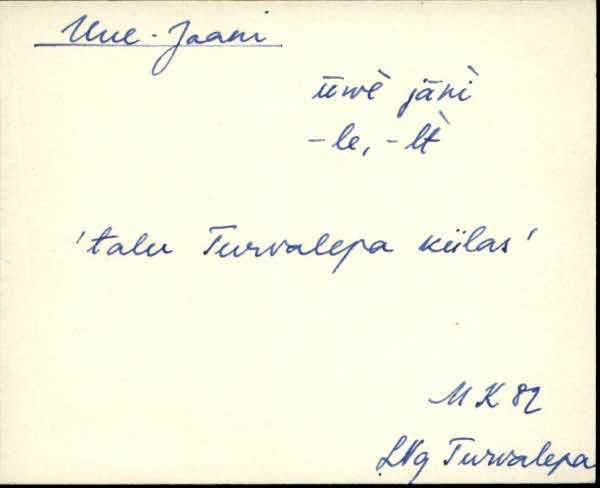 Uue-Jaani
ūwè jāǹì
-le, -lt̀
'talu Turvalepa külas'
MK 82
LNg Turvalepa